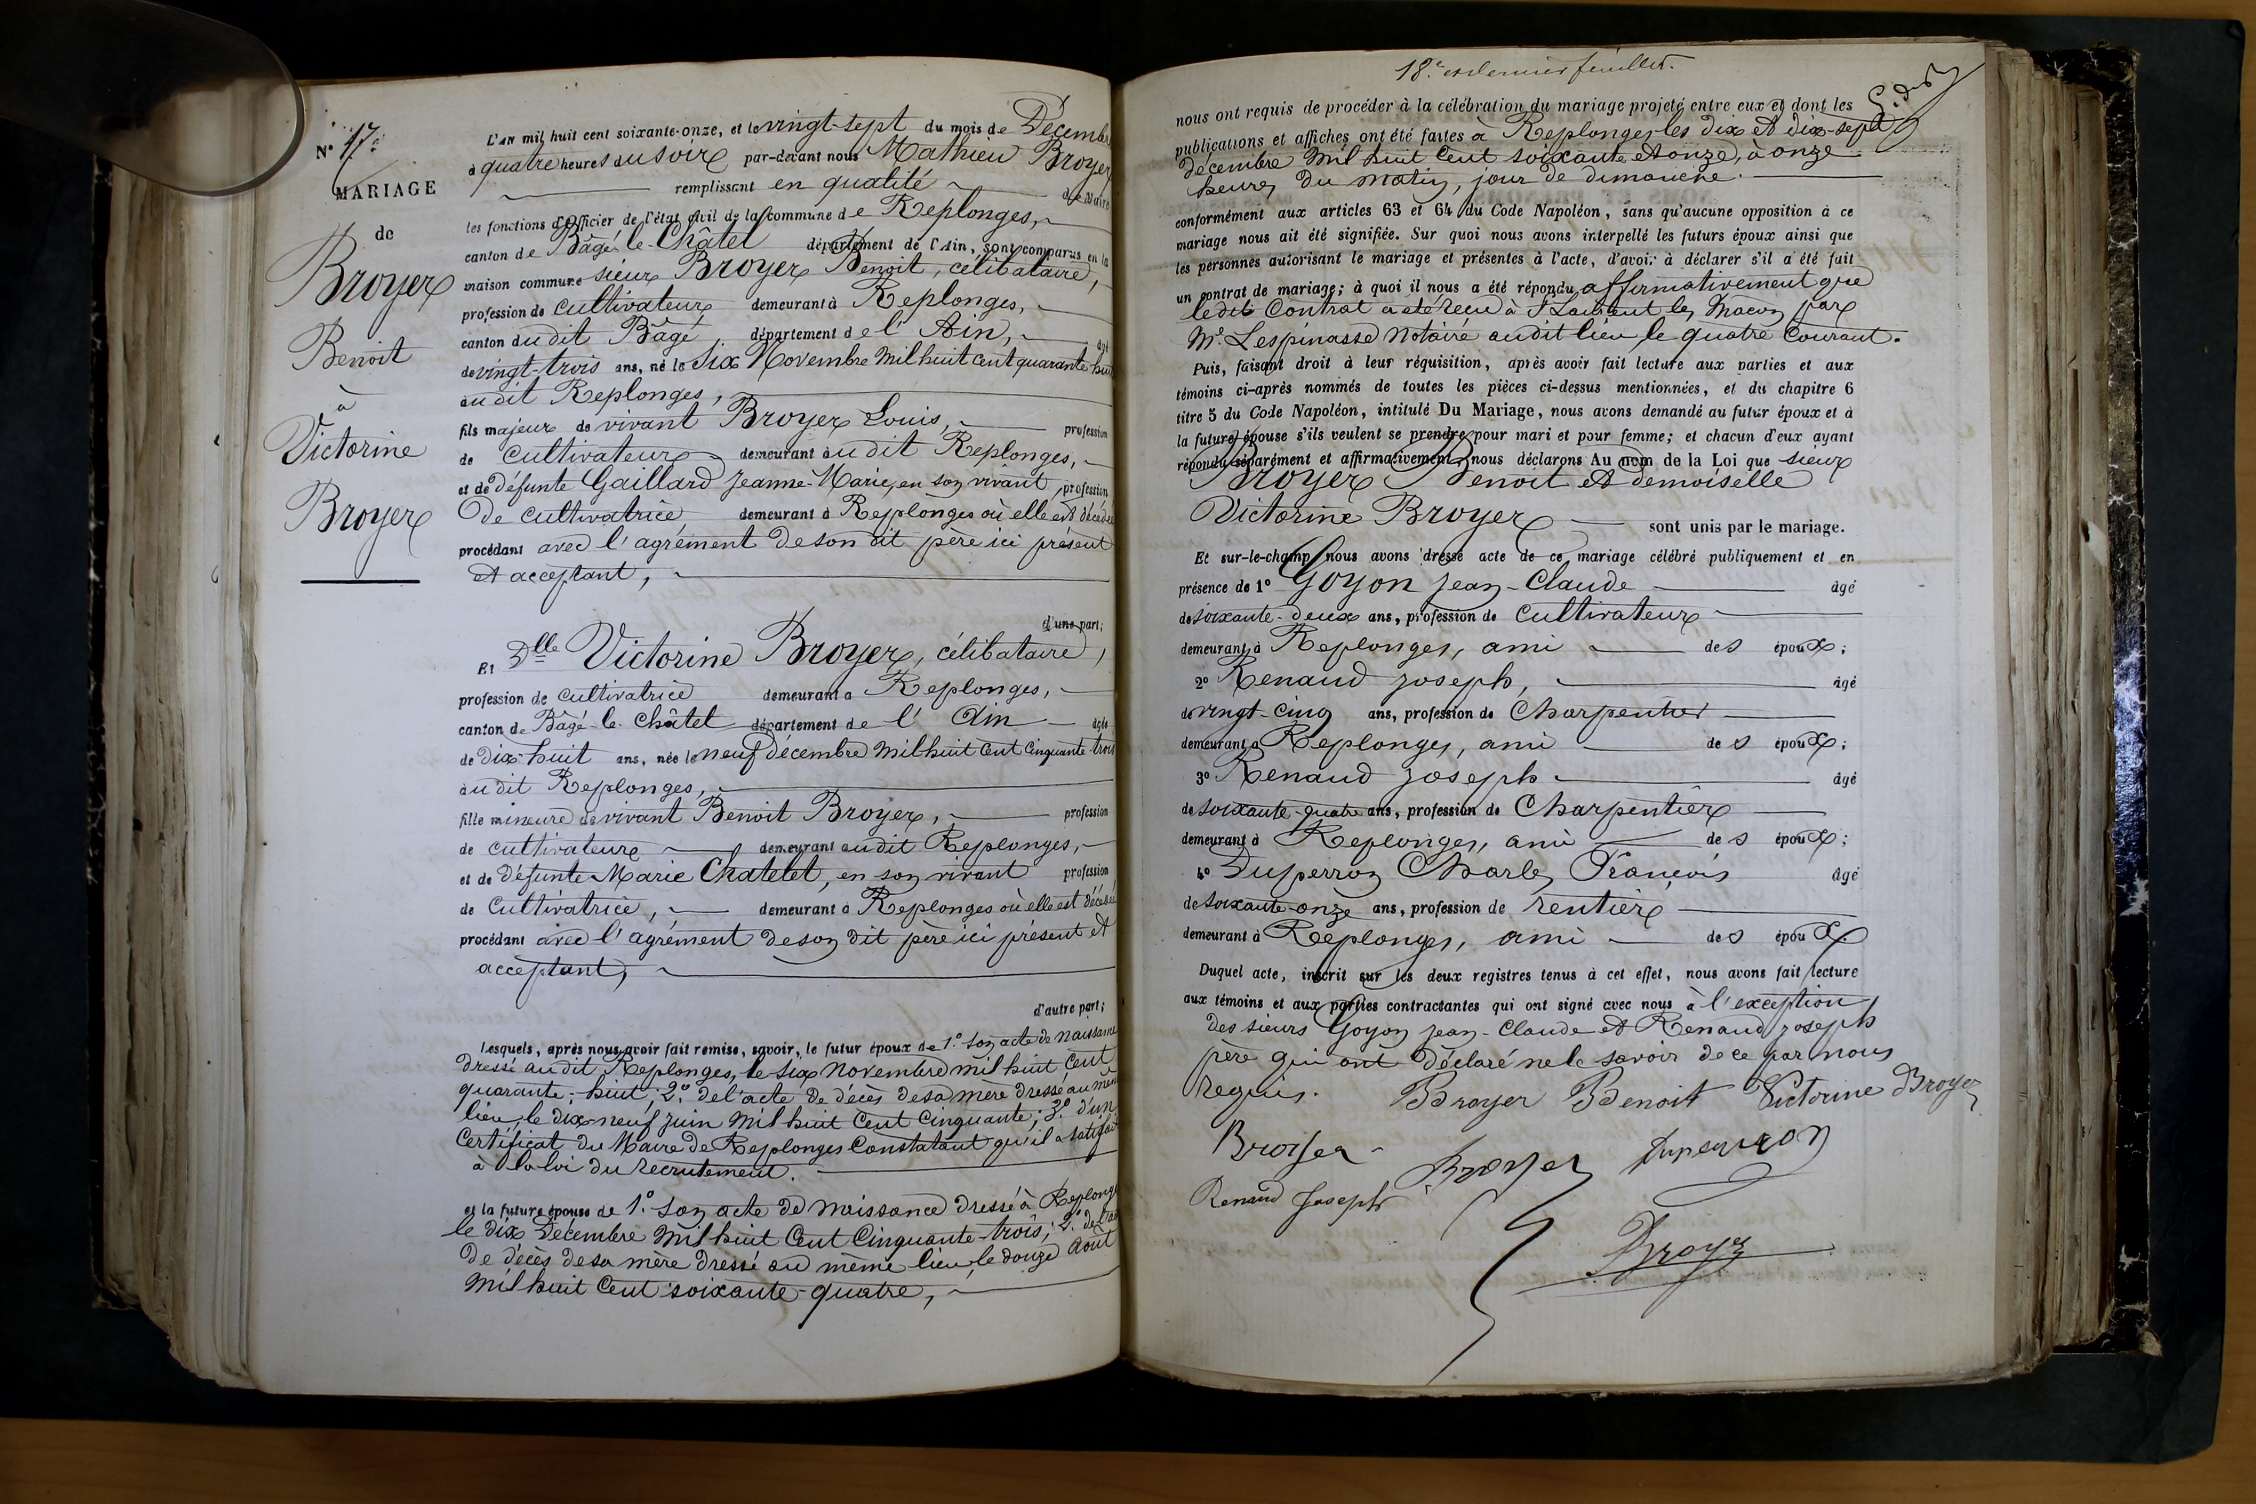 N° 17.
MARIAGE
de
Broyer
Benoit
à
Victorine
Broyer
L'AN mil huit cent soixante-onze, et le vingt-sept du mois de Décembre
à quatre heures du soir par-devant nous Mathieu Broyer
remplissant en qualité de Maire
les fonctions d'Officier de l'état civil de la commune de Replonges,
canton de Bâgé-le-Châtel département de l'Ain, sont comparus en la
maison commune sieur Broyer Benoit, célibataire,
profession de cultivateur demeurant à Replonges,
canton dudit Bâgé département de l'Ain, âgé
de vingt-trois ans, né le six Novembre mil huit cent quarante-huit
audit Replonges,
fils majeur de vivant Broyer Louis, profession
de cultivateur demeurant audit Replonges,
et de défunte Gaillard Jeanne-Marie, en son vivant, profession
De cultivatrice demeurant à Replonges où elle est décédée
procédant avec l'agrément de son dit père ici présent
et acceptant,
d'une part;
Et Dlle Victorine Broyer, célibataire,
profession de cultivatrice demeurant à Replonges,
canton de Bâgé-le-Châtel département de l'Ain âgée
de dix-huit ans, née le neuf décembre mil huit cent cinquante-trois
audit Replonges,
fille mineure de vivant Benoit Broyer, profession
de cultivateur demeurant audit Replonges,
et de défunte Marie Chatelet, en son vivant profession
de cultivatrice, demeurant à Replonges où elle est décédée
procédant avec l'agrément de son dit père ici présent et
acceptant,
d'autre part;
Lesquels, après nous avoir fait remise, savoir, le futur époux de 1° son acte de naissance
dressé audit Replonges, le six novembre mil huit cent
quarante-huit; 2° de l'acte de décès de sa mère dressé au même
lieu, le dix-neuf juin mil huit cent cinquante; 3° d'un
certificat du Maire de Replonges constatant qu'il a satisfait
à la loi du recrutement.
et la future épouse de 1° son acte de naissance dressé à Replonges
le dix Décembre mil huit cent cinquante-trois; 2° de l'acte
de décès de sa mère dressé au même lieu, le douze août
mil huit cent soixante-quatre,
18.e et dernier feuillet.
nous ont requis de procéder à la célébration du mariage projeté entre eux et dont les
publications et affiches ont été faites à Replonges les dix et dix-sept
décembre mil huit cent soixante et onze, à onze
heures du matin, jour de dimanche.
conformément aux articles 63 et 64 du Code Napoléon, sans qu'aucune opposition à ce
mariage nous ait été signifiée. Sur quoi nous avons interpellé les futurs époux ainsi que
les personnes autorisant le mariage et présentes à l'acte, d'avoir à déclarer s'il a été fait
un contrat de mariage; à quoi il nous a été répondu affirmativement que
ledit contrat a été reçu à St Laurent les Macon par
Me Lespinasse Notaire audit lieu le quatre courant.
Puis, faisant droit à leur réquisition, après avoir fait lecture aux parties et aux
témoins ci-après nommés de toutes les pièces ci-dessus mentionnées, et du chapitre 6
titre 5 du Code Napoléon, intitulé Du Mariage, nous avons demandé au futur époux et à
la future épouse s'ils veulent se prendre pour mari et pour femme; et chacun d'eux ayant
répondu séparément et affirmativement, nous déclarons Au nom de la Loi que sieur
Broyer Benoit et demoiselle
Victorine Broyer sont unis par le mariage.
Et sur-le-champ nous avons dressé acte de ce mariage célébré publiquement et en
présence de 1° Goyon Jean-Claude âgé
de soixante-deux ans, profession de cultivateur
demeurant à Replonges, ami des époux;
2° Renaud Joseph, âgé
de vingt-cinq ans, profession de Charpentier
demeurant à Replonges, ami des époux;
3° Renaud Joseph âgé
de soixante-quatre ans, profession de Charpentier
demeurant à Replonges, ami des époux;
4° Duperron Charles François âgé
de soixante-onze ans, profession de rentier
demeurant à Replonges, ami des époux.
Duquel acte, inscrit sur les deux registres tenus à cet effet, nous avons fait lecture
aux témoins et aux parties contractantes qui ont signé avec nous à l'exception
des sieurs Goyon Jean-Claude et Renaud Joseph
père qui ont déclaré ne le savoir de ce par nous
requis. Broyer Benoit Victorine Broyer
Broyer Broyer Duperron
Renaud Joseph
Broyer